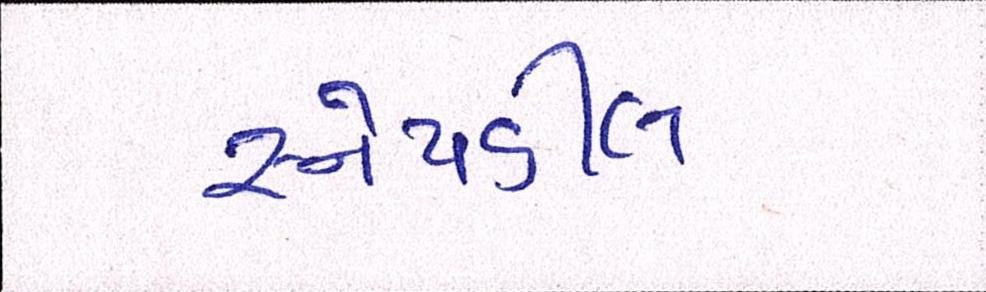 સ્નેપડીલ